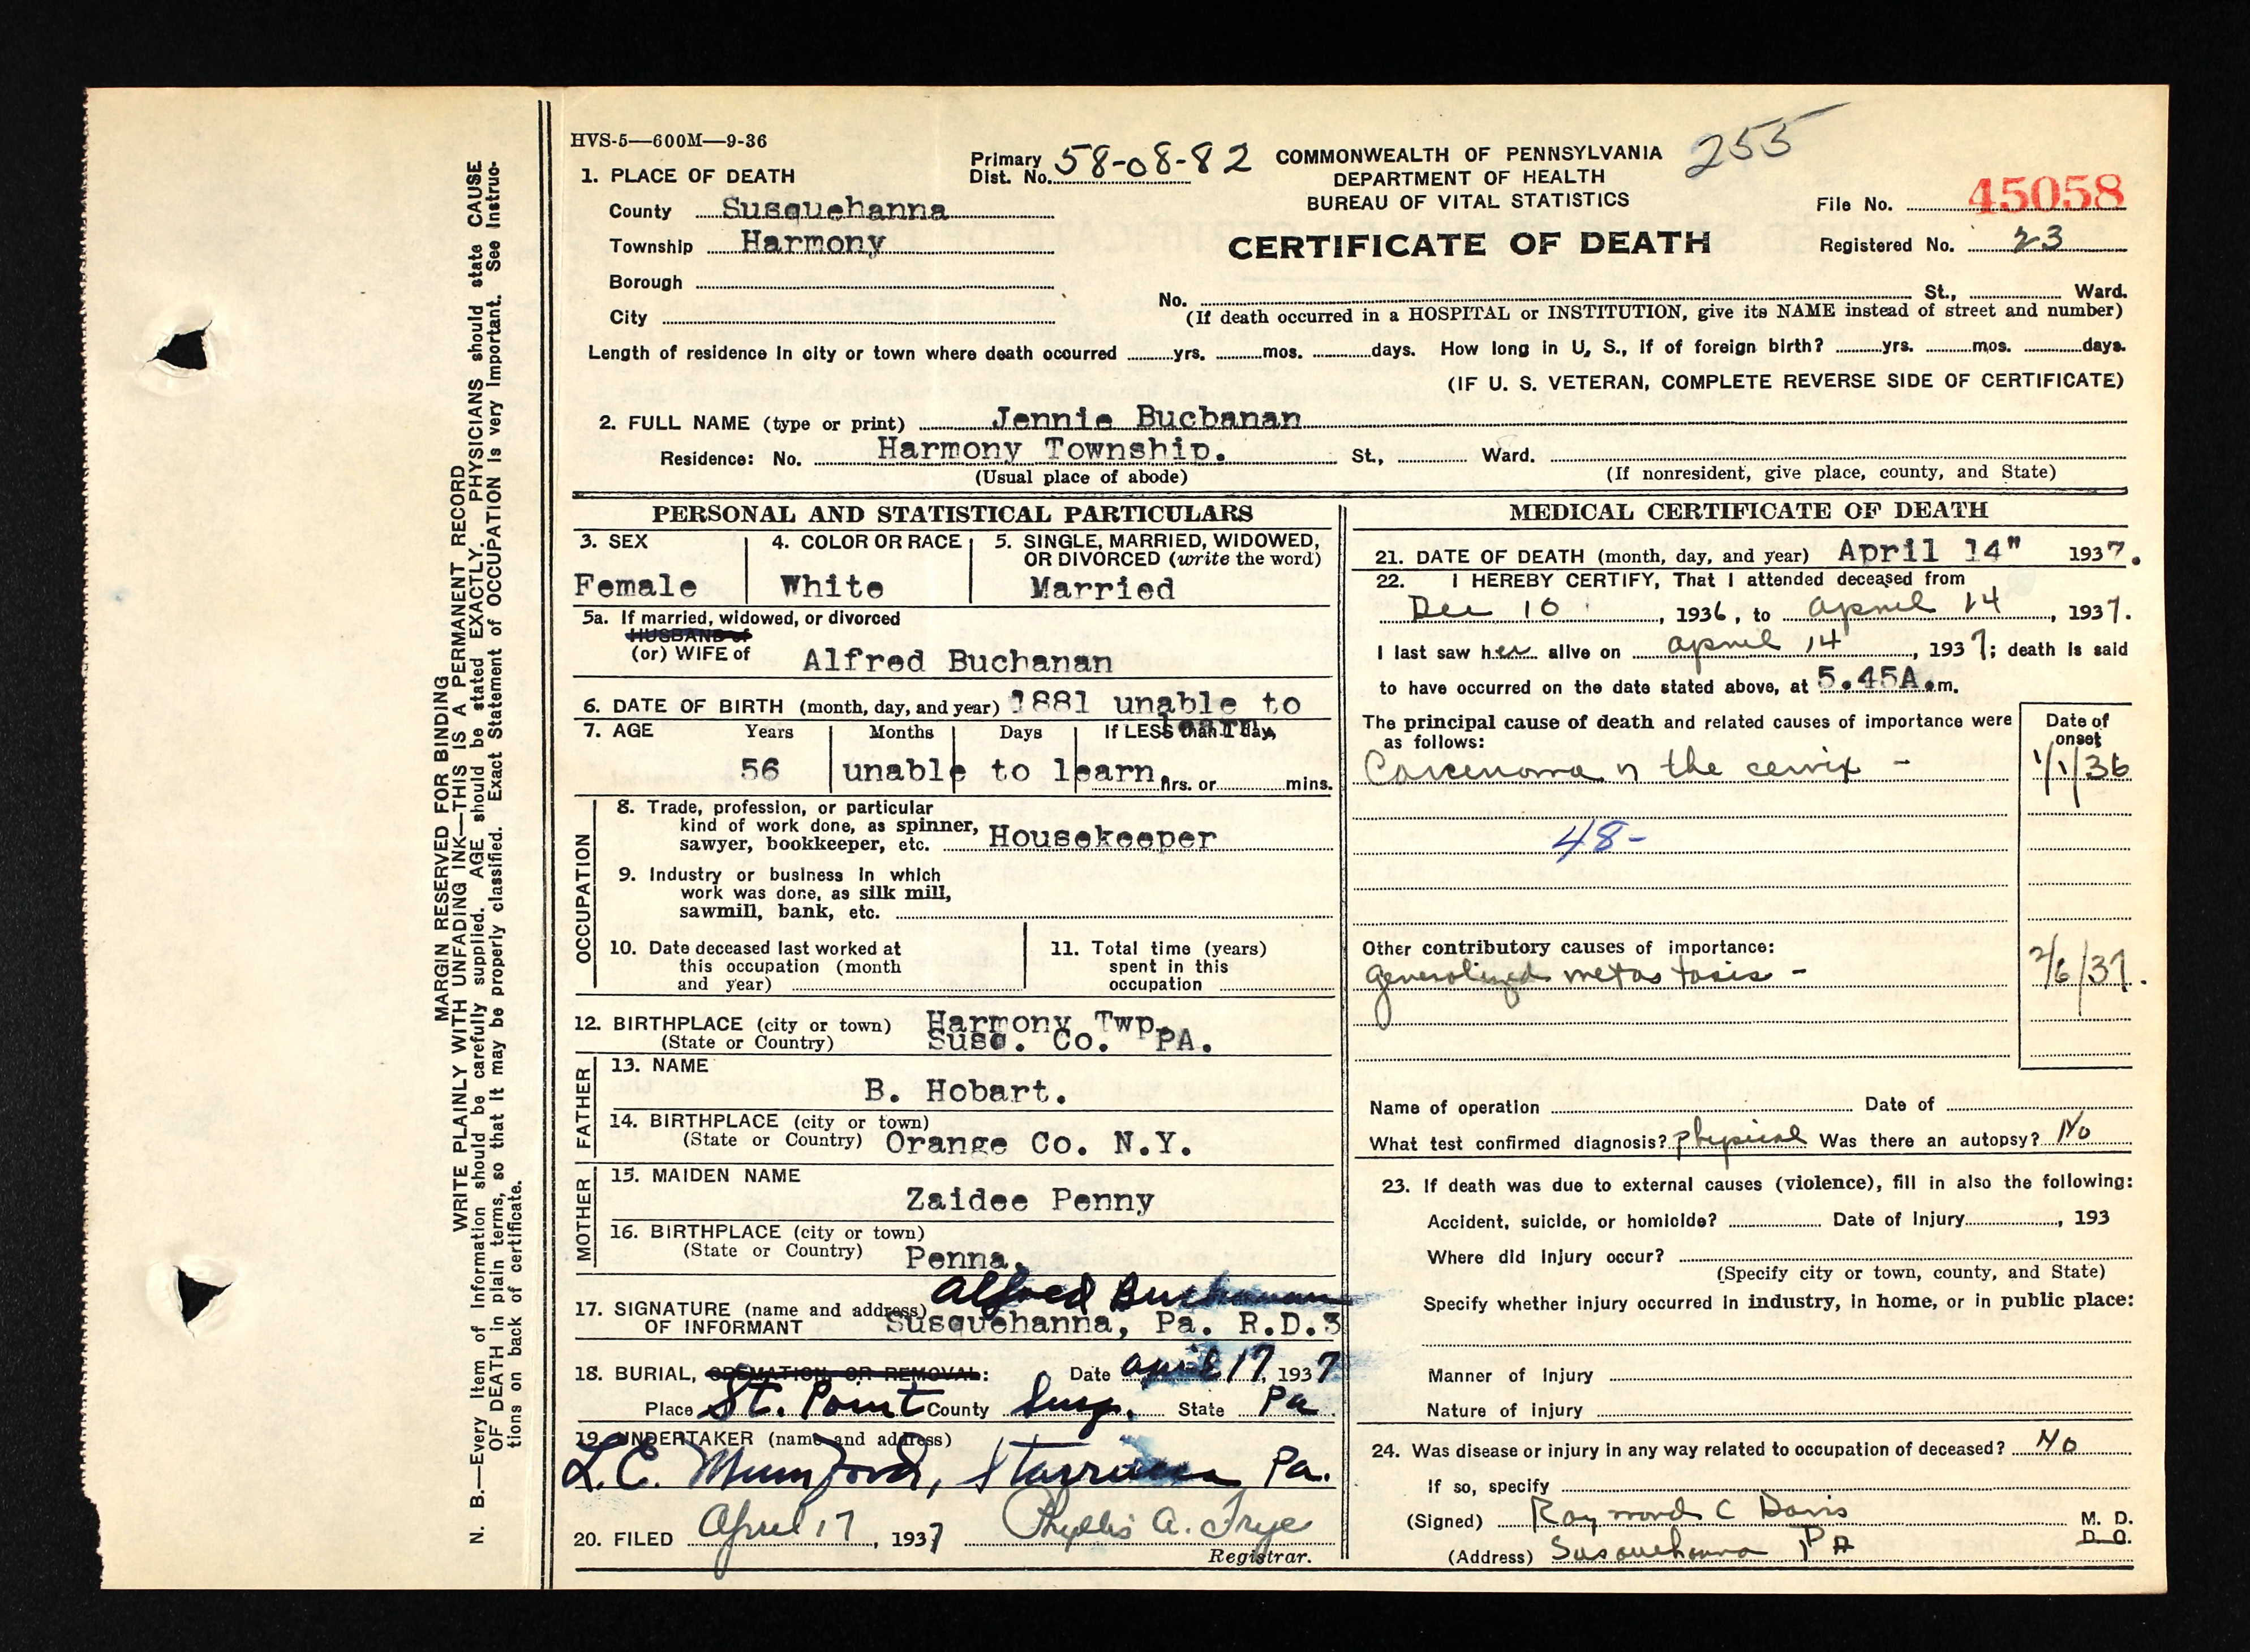 HVS-5—600M—9-36
Primary
Dist. No. 58-08-82
COMMONWEALTH OF PENNSYLVANIA
DEPARTMENT OF HEALTH
BUREAU OF VITAL STATISTICS
255
CERTIFICATE OF DEATH
File No. 45058
Registered No. 23
1. PLACE OF DEATH
County Susquehanna
Township Harmony
Borough
City
No. St., Ward.
(If death occurred in a HOSPITAL or INSTITUTION, give its NAME instead of street and number)
Length of residence in city or town where death occurred yrs. mos. days. How long in U. S., if of foreign birth? yrs. mos. days.
(IF U. S. VETERAN, COMPLETE REVERSE SIDE OF CERTIFICATE)
2. FULL NAME (type or print) Jennie Buchanan
Residence: No. Harmony Township. St., Ward.
(Usual place of abode) (If nonresident, give place, county, and State)
PERSONAL AND STATISTICAL PARTICULARS
3. SEX
Female
4. COLOR OR RACE
White
5. SINGLE, MARRIED, WIDOWED,
OR DIVORCED (write the word)
Married
5a. If married, widowed, or divorced
HUSBAND of
(or) WIFE of Alfred Buchanan
6. DATE OF BIRTH (month, day, and year) 1881 unable to
learn
7. AGE Years Months Days If LESS than 1 day,
56 unable to learn. hrs. or mins.
OCCUPATION
8. Trade, profession, or particular
kind of work done, as spinner,
sawyer, bookkeeper, etc. Housekeeper
9. Industry or business in which
work was done, as silk mill,
sawmill, bank, etc.
10. Date deceased last worked at
this occupation (month
and year)
11. Total time (years)
spent in this
occupation
12. BIRTHPLACE (city or town) Harmony Twp.
(State or Country) Susq. Co. PA.
FATHER
13. NAME
B. Hobart.
14. BIRTHPLACE (city or town)
(State or Country) Orange Co. N.Y.
MOTHER
15. MAIDEN NAME
Zaidee Penny
16. BIRTHPLACE (city or town)
(State or Country) Penna.
17. SIGNATURE (name and address) Alfred Buchanan
OF INFORMANT Susquehanna, Pa. R.D.3
18. BURIAL, CREMATION, OR REMOVAL: Date April 17, 1937
Place St. Point County Susq. State Pa
19. UNDERTAKER (name and address)
L.C. Mumford, Starrucca Pa.
20. FILED April 17, 1937 Phyllis A. Frye
Registrar.
MEDICAL CERTIFICATE OF DEATH
21. DATE OF DEATH (month, day, and year) April 14" 1937.
22. I HEREBY CERTIFY, That I attended deceased from
Dec 10, 1936, to April 14, 1937.
I last saw her alive on April 14, 1937; death is said
to have occurred on the date stated above, at 5.45A.m.
The principal cause of death and related causes of importance were
as follows:
Date of
onset
Carcinoma of the cervix - 1/1/36
48-
Other contributory causes of importance:
Generalized metastasis - 2/6/37.
Name of operation Date of
What test confirmed diagnosis? physical Was there an autopsy? No
23. If death was due to external causes (violence), fill in also the following:
Accident, suicide, or homicide? Date of Injury , 193
Where did Injury occur?
(Specify city or town, county, and State)
Specify whether injury occurred in industry, in home, or in public place:
Manner of Injury
Nature of injury
24. Was disease or injury in any way related to occupation of deceased? No
If so, specify
(Signed) Raymond C Davis M. D.
D. O.
(Address) Susquehanna PA
MARGIN RESERVED FOR BINDING
WRITE PLAINLY WITH UNFADING INK—THIS IS A PERMANENT RECORD
N. B.—Every item of information should be carefully supplied. AGE should be stated EXACTLY. PHYSICIANS should state CAUSE
OF DEATH in plain terms, so that it may be properly classified. Exact Statement of OCCUPATION is very important. See Instruc-
tions on back of certificate.